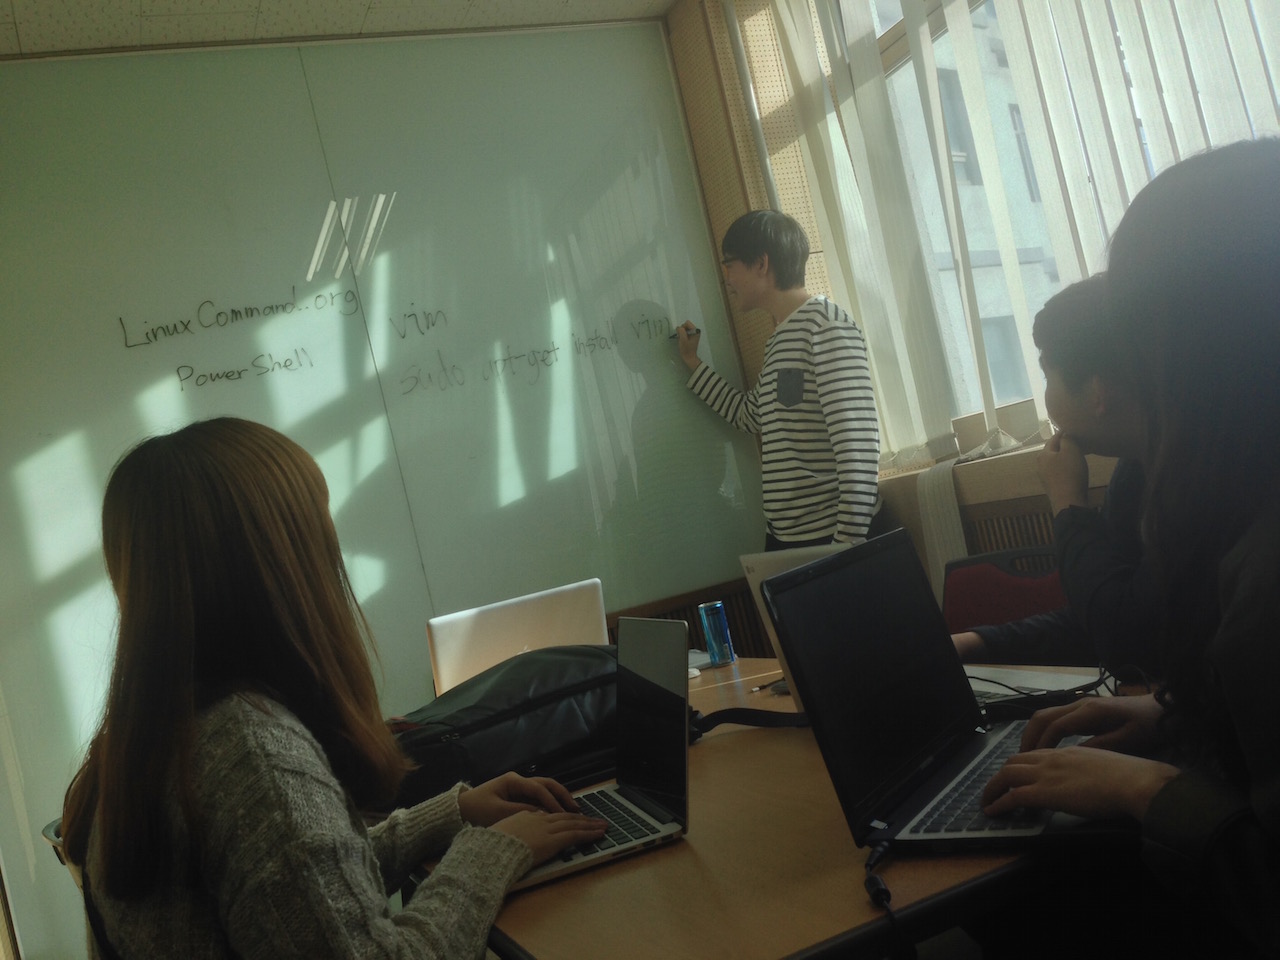 LinuxCommand.org
PowerShell
vim
sudo apt-get install vim